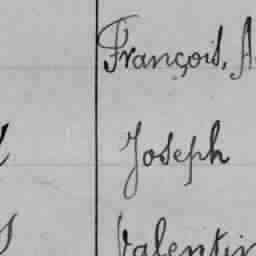 François, A
Joseph
Valentin